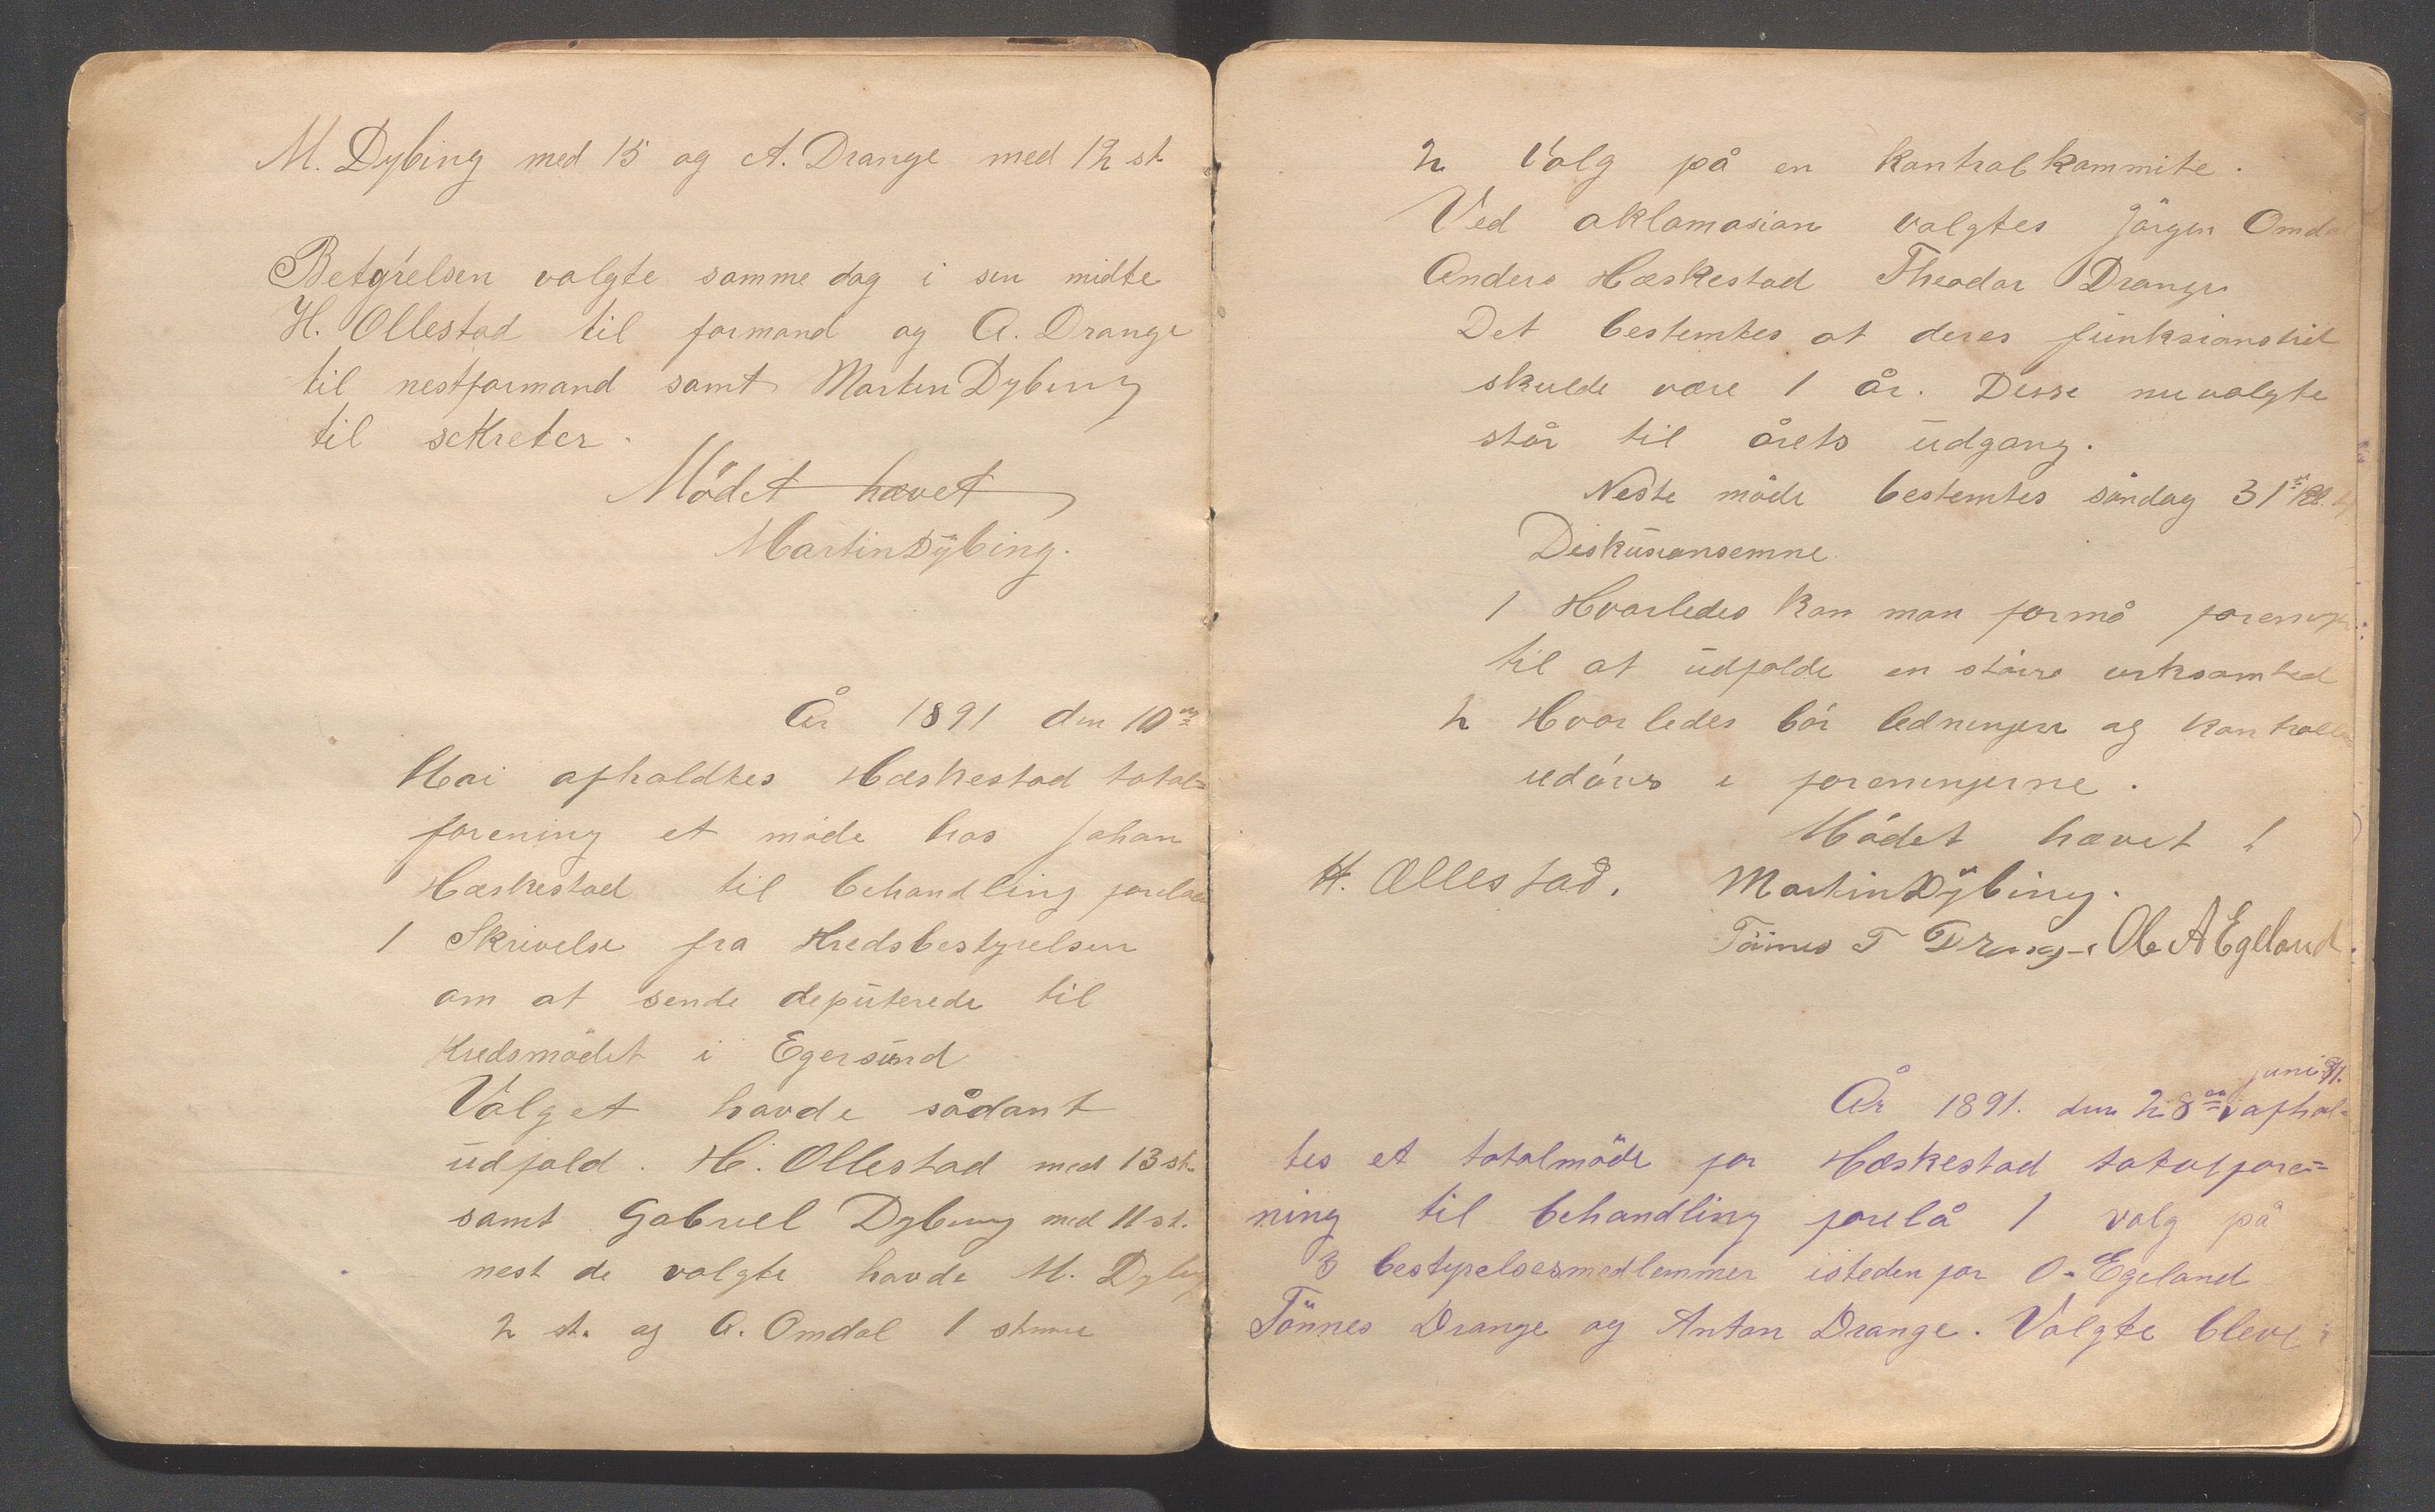 M. Dybing med 15 og A. Drange med 12 st.
Betyrelsen valgte samme dag i sin midte
H. Ollestad til formand og A. Drange
til nestformand samt Martin Dybing
til sekreter.
Mödet hævet
Martin Dÿbing.
År 1891 den 10de
Mai afholdtes Hæskestad total=
forening et möde hos Johan
Hæskestad til behandling forelaa
1 Skrivelse fra Kredsbestyrelsen
om at sende deputerede til
Kredsmödet i Egersund
Valget havde sådant
udfald. H. Ollestad med 13 st.
samt Gabriel Dybing med 11 st.
nest de valgte havde M. Dybing
2 st. og A. Omdal 1 stemme
2 Valg på en kontrolkommite.
Ved aklamasion valgtes Jörgen Omdal
Anders Hæskestad Theodor Drange
Det bestemtes at deres funksionstid
skulde være 1 år. Disse nuvalgte
står til årets udgang.
Neste möde bestemtes söndag 31te kl.
Diskusionsemne.
1 Hvorledes kan man formå
til at udfolde en större virksomhed
2 Hvorledes bör ledningen og kontrollen
udöves i foreningerne.
Mödet hævet !
H. Ollestad. Martin Dÿbing.
Tönnes T Drange Ole A Egeland.
juni 91.
År 1891. den 28de afhol=
tes et totalmöde for Hæskestad totalfore=
ning til behandling forelå 1 valg på
3 bestyrelsesmedlemmer isteden for O. Egeland
Tönnes Drange og Anton Drange. Valgte bleve: